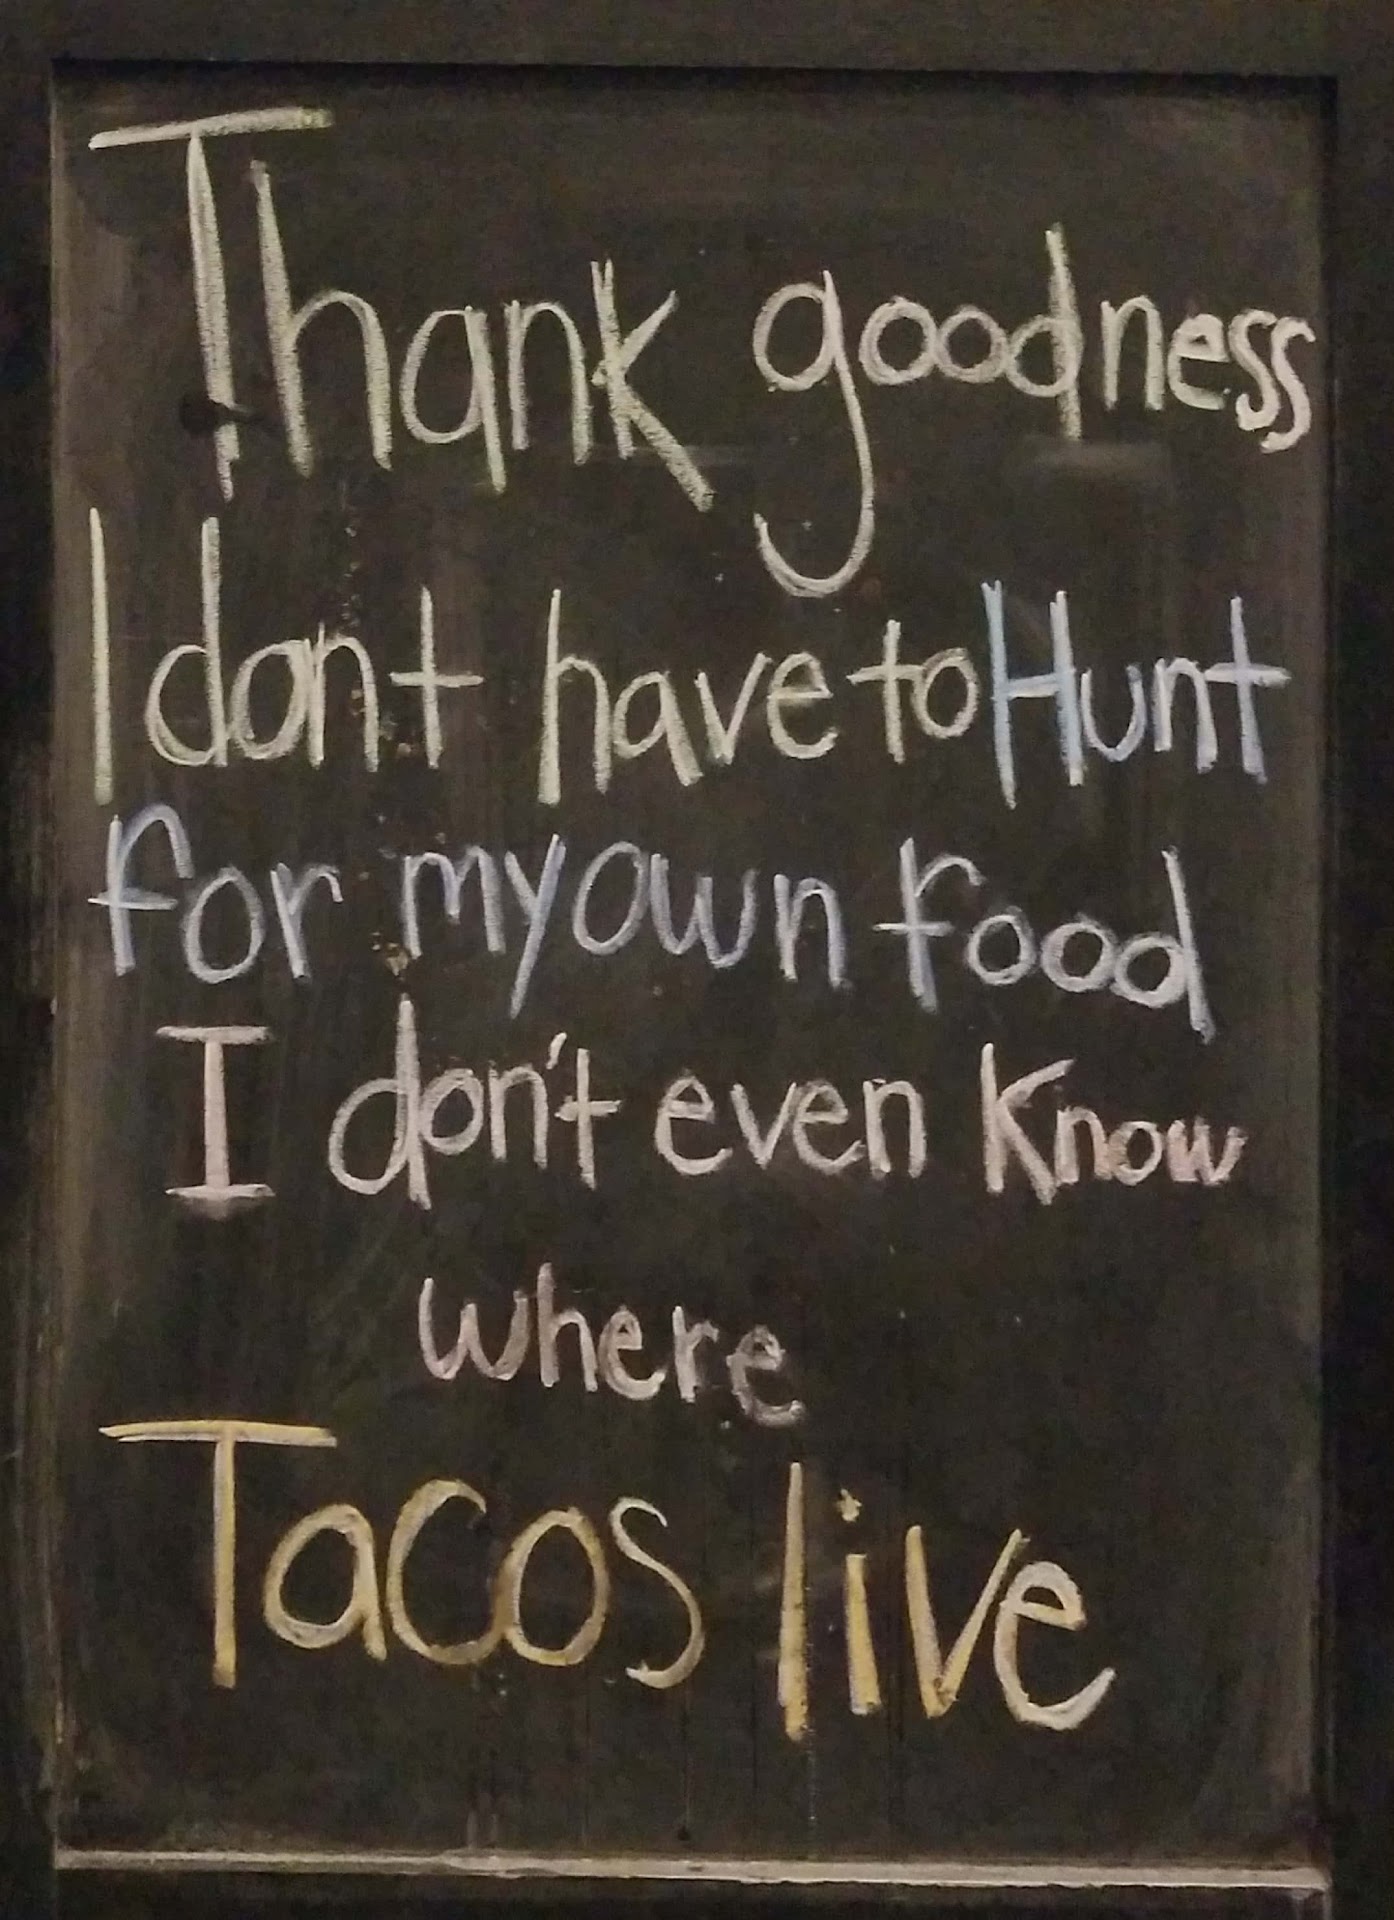 Thank goodness
I dont have to Hunt
for my own food
I don't even know
where
Tacos live